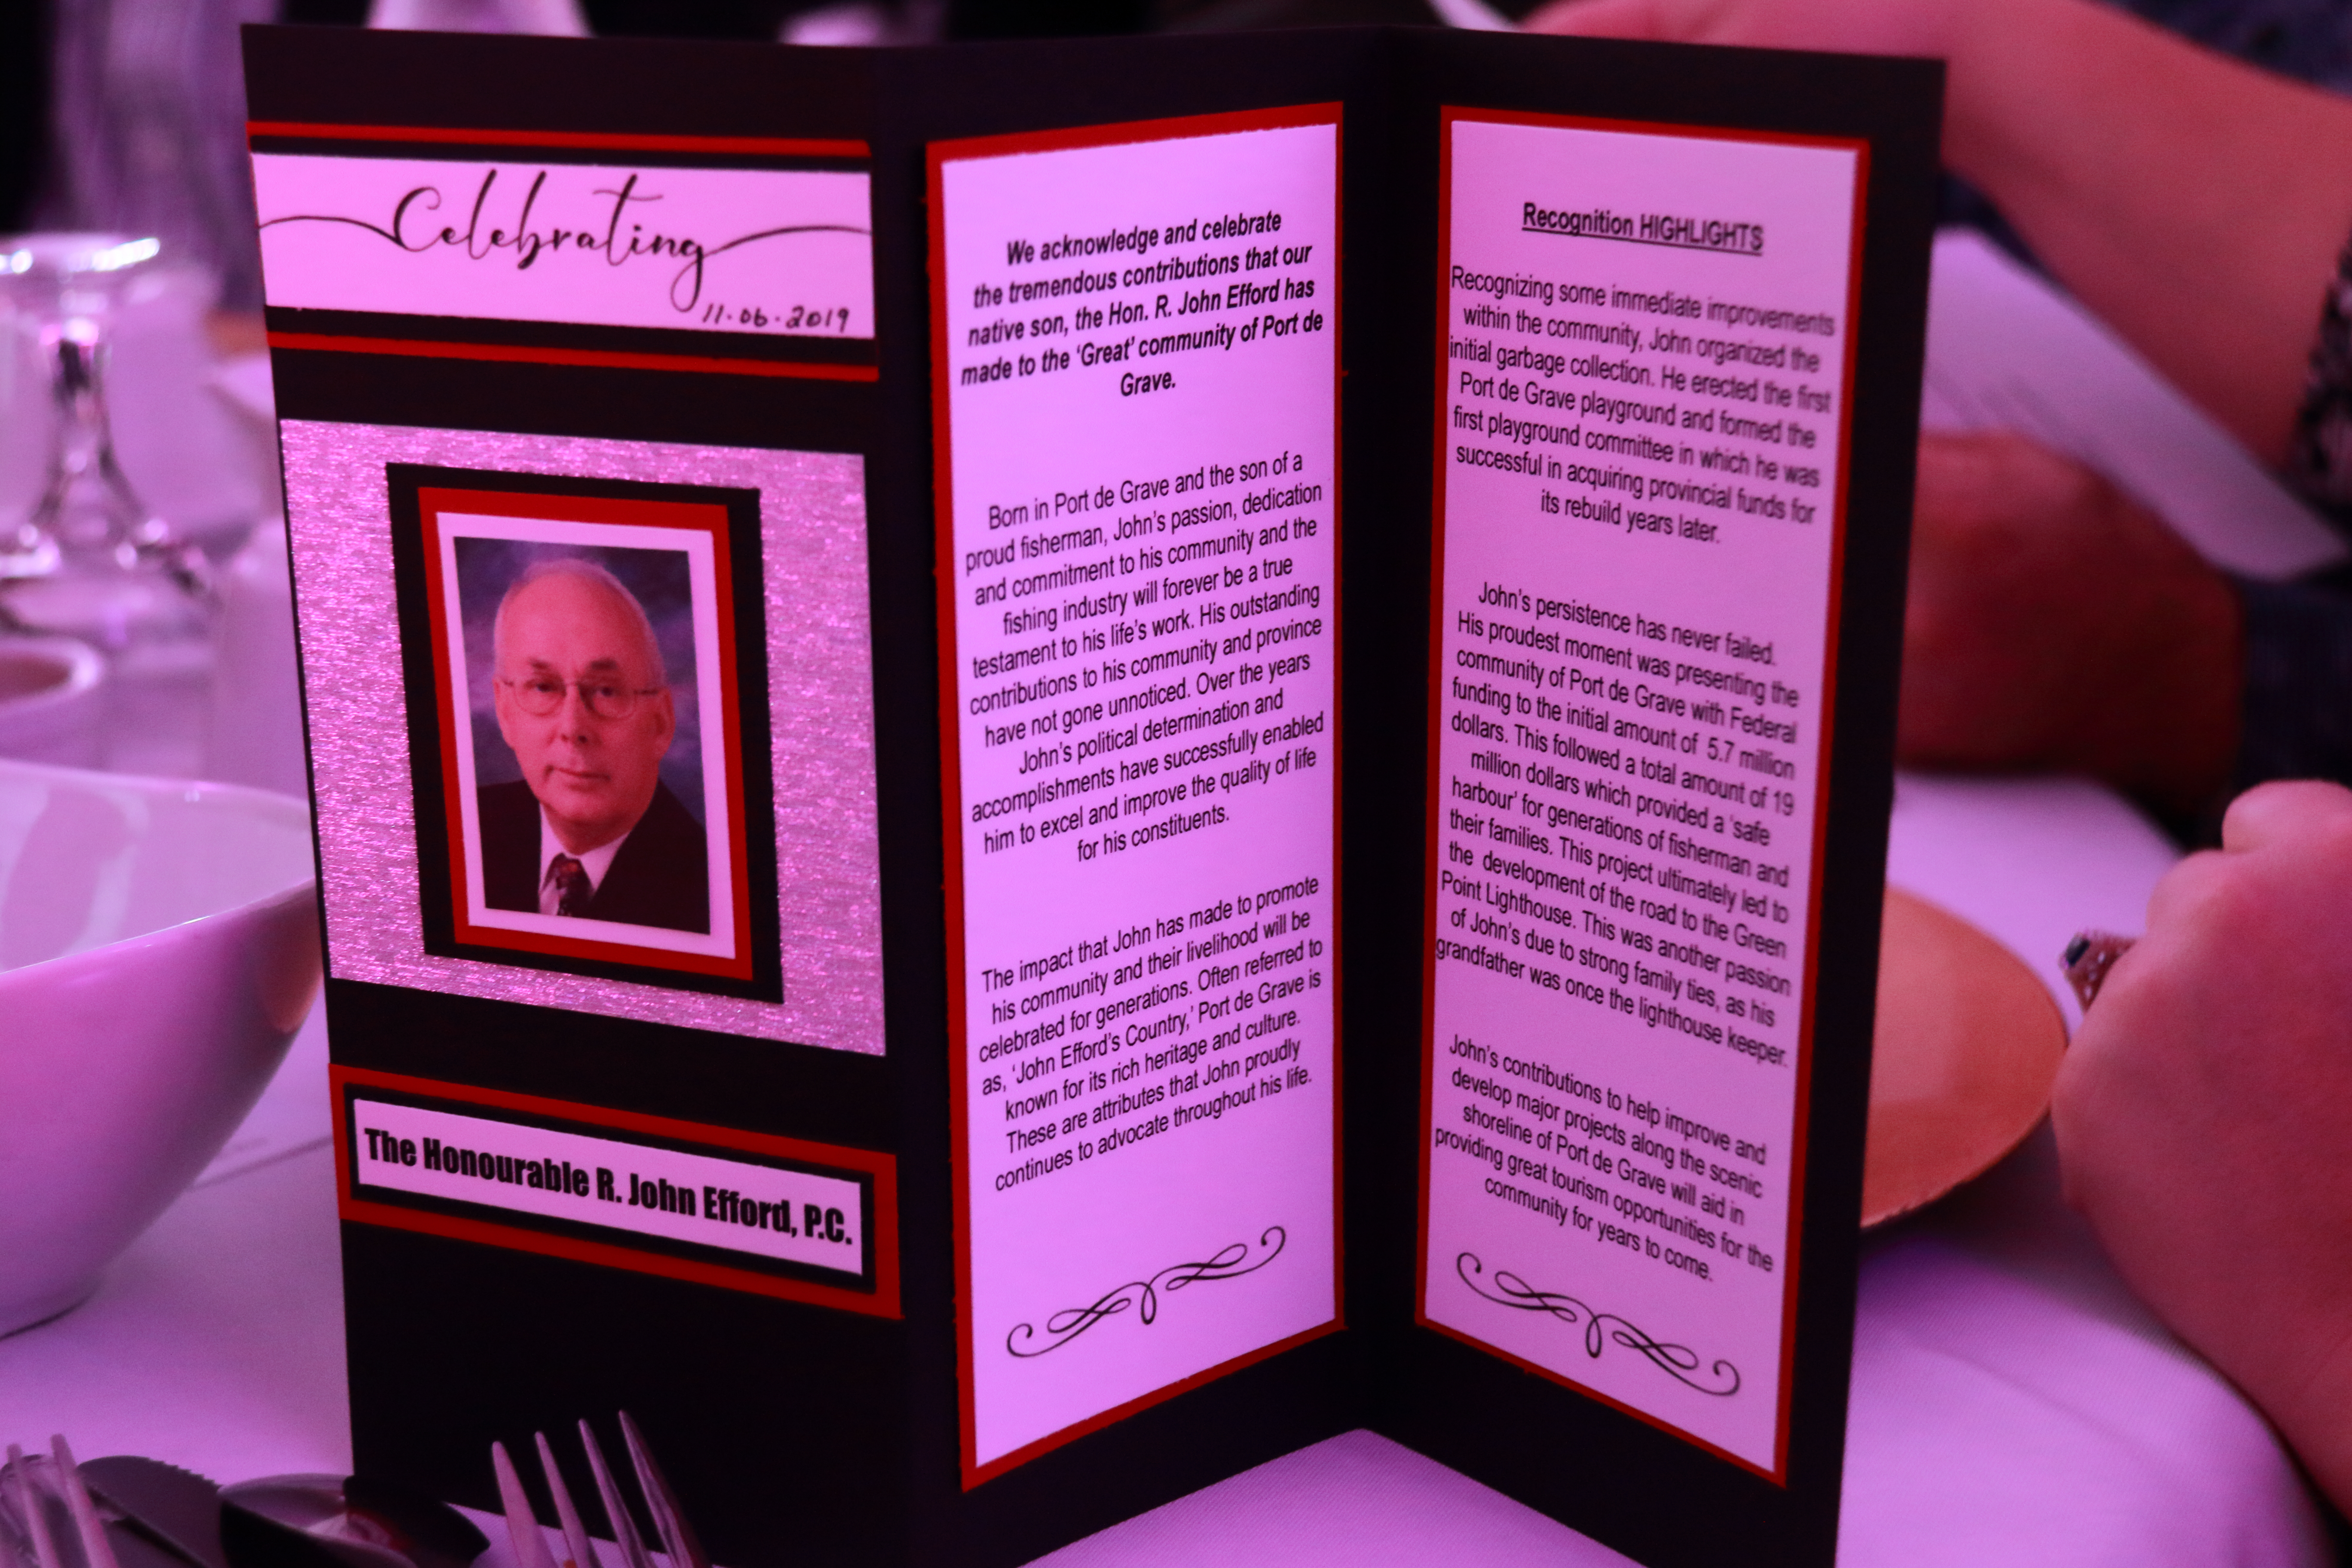 Celebrating
11.06.2019
The Honourable R. John Efford, P.C.
We acknowledge and celebrate
the tremendous contributions that our
native son, the Hon. R. John Efford has
made to the ‘Great’ community of Port de
Grave.
Born in Port de Grave and the son of a
proud fisherman, John’s passion, dedication
and commitment to his community and the
fishing industry will forever be a true
testament to his life’s work. His outstanding
contributions to his community and province
have not gone unnoticed. Over the years
John’s political determination and
accomplishments have successfully enabled
him to excel and improve the quality of life
for his constituents.
The impact that John has made to promote
his community and their livelihood will be
celebrated for generations. Often referred to
as, ‘John Efford’s Country,’ Port de Grave is
known for its rich heritage and culture.
These are attributes that John proudly
continues to advocate throughout his life.
Recognition HIGHLIGHTS
Recognizing some immediate improvements
within the community, John organized the
initial garbage collection. He erected the first
Port de Grave playground and formed the
first playground committee in which he was
successful in acquiring provincial funds for
its rebuild years later.
John’s persistence has never failed.
His proudest moment was presenting the
community of Port de Grave with Federal
funding to the initial amount of 5.7 million
dollars. This followed a total amount of 19
million dollars which provided a ‘safe
harbour’ for generations of fisherman and
their families. This project ultimately led to
the development of the road to the Green
Point Lighthouse. This was another passion
of John’s due to strong family ties, as his
grandfather was once the lighthouse keeper.
John’s contributions to help improve and
develop major projects along the scenic
shoreline of Port de Grave will aid in
providing great tourism opportunities for the
community for years to come.